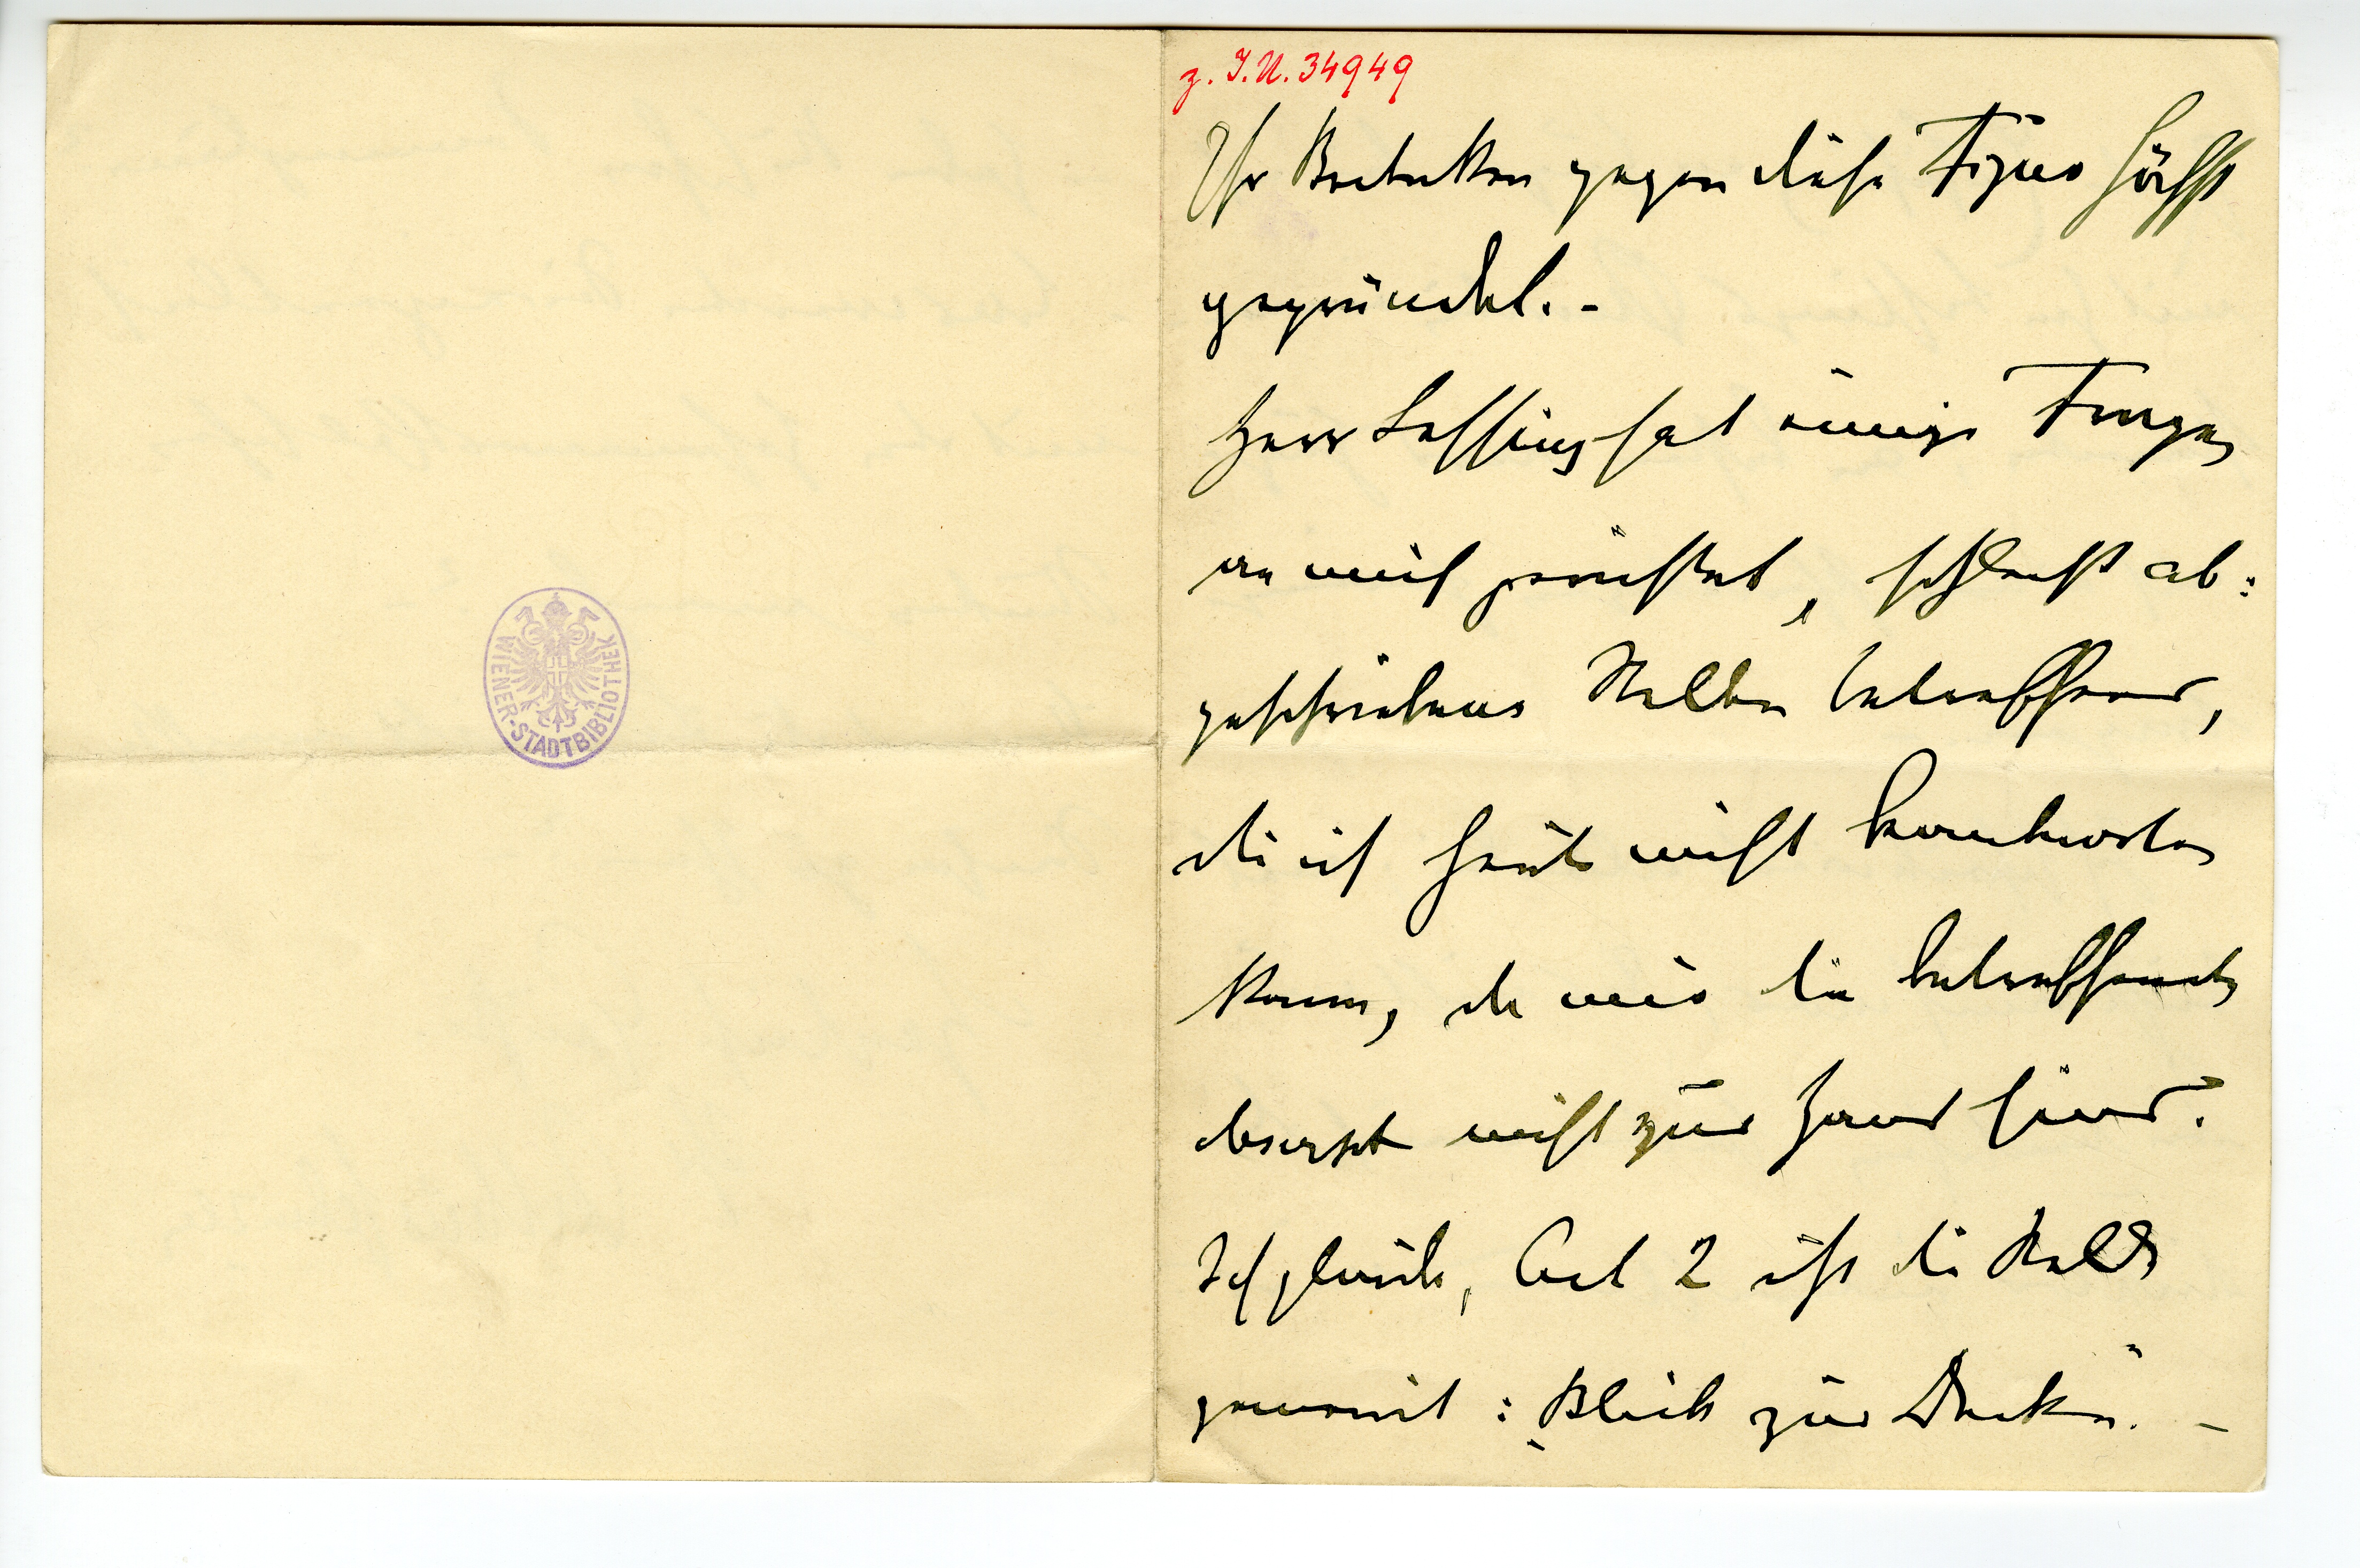 WIENER-STADTBIBLIOTHEK
z. I.N. 34949
Ihr Bedenken gegen diese Figur höchst
gegründet. -
Herr Lessing hat einige Fragen
an mich gerichtet, schlecht ab:
geschriebene Stellen betreffend,
die ich heute nicht beantworten
kann, da mir die betreffenden
derzeit nicht zur Hand sind.
Ich glaube, Act 2 ist die Stelle
gemeint: „Blick zur Decke“. -